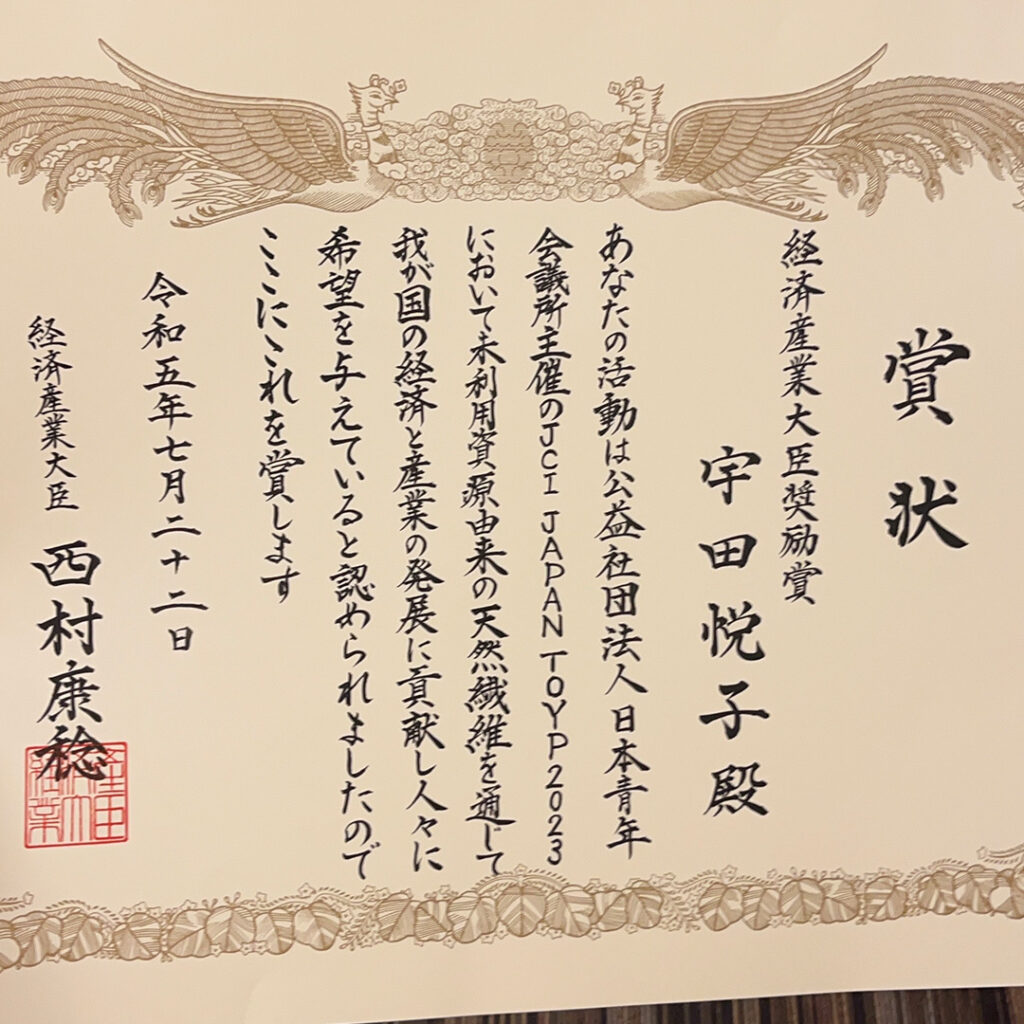 賞状
経済産業大臣奨励賞
宇田悦子殿
あなたの活動は公益社団法人日本青年
会議所主催のJCI JAPAN TOYP2023
において未利用資源由来の天然繊維を通じて
我が国の経済と産業の発展に貢献し人々に
希望を与えていると認められましたので
ここにこれを賞します
令和五年七月二十二日
経済産業大臣 西村康稔